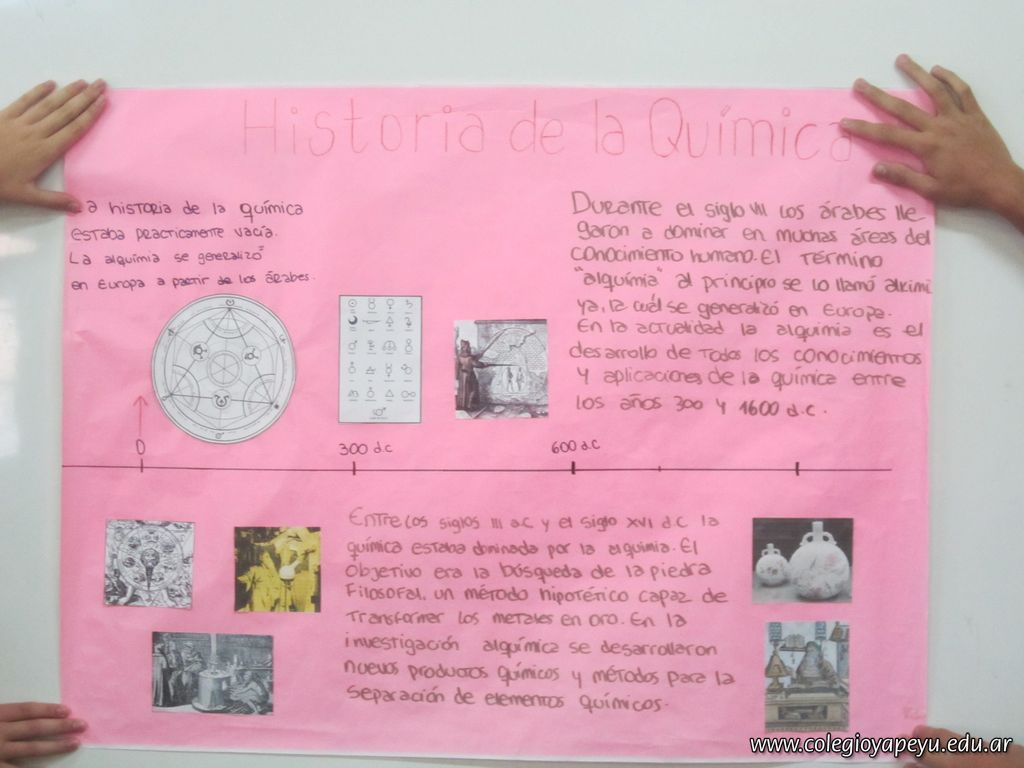 Historia de la Química
La historia de la química
estaba practicamente vacía.
La alquimia se generalizó
en Europa a partir de los árabes.
Durante el siglo VII los árabes lle
garon a dominar en muchas áreas del
conocimiento humano. El término
"alquimia" al principio se lo llamó alkimi
ya, la cuál se generalizó en Europa.
En la actualidad la alquimia es el
desarrollo de todos los conocimientos
y aplicaciones de la química entre
los años 300 y 1600 d.C.
0
300 d.C
600 d.C
Entre los siglos III a.C. y el siglo XVI d.C la
química estaba dominada por la alquimia. El
objetivo era la búsqueda de la piedra
Filosofal, un método hipotético capaz de
transformer los metales en oro. En la
investigación alquímica se desarrollaron
nuevos productos químicos y métodos para la
separación de elementos químicos.
www.colegioyapeyu.edu.ar